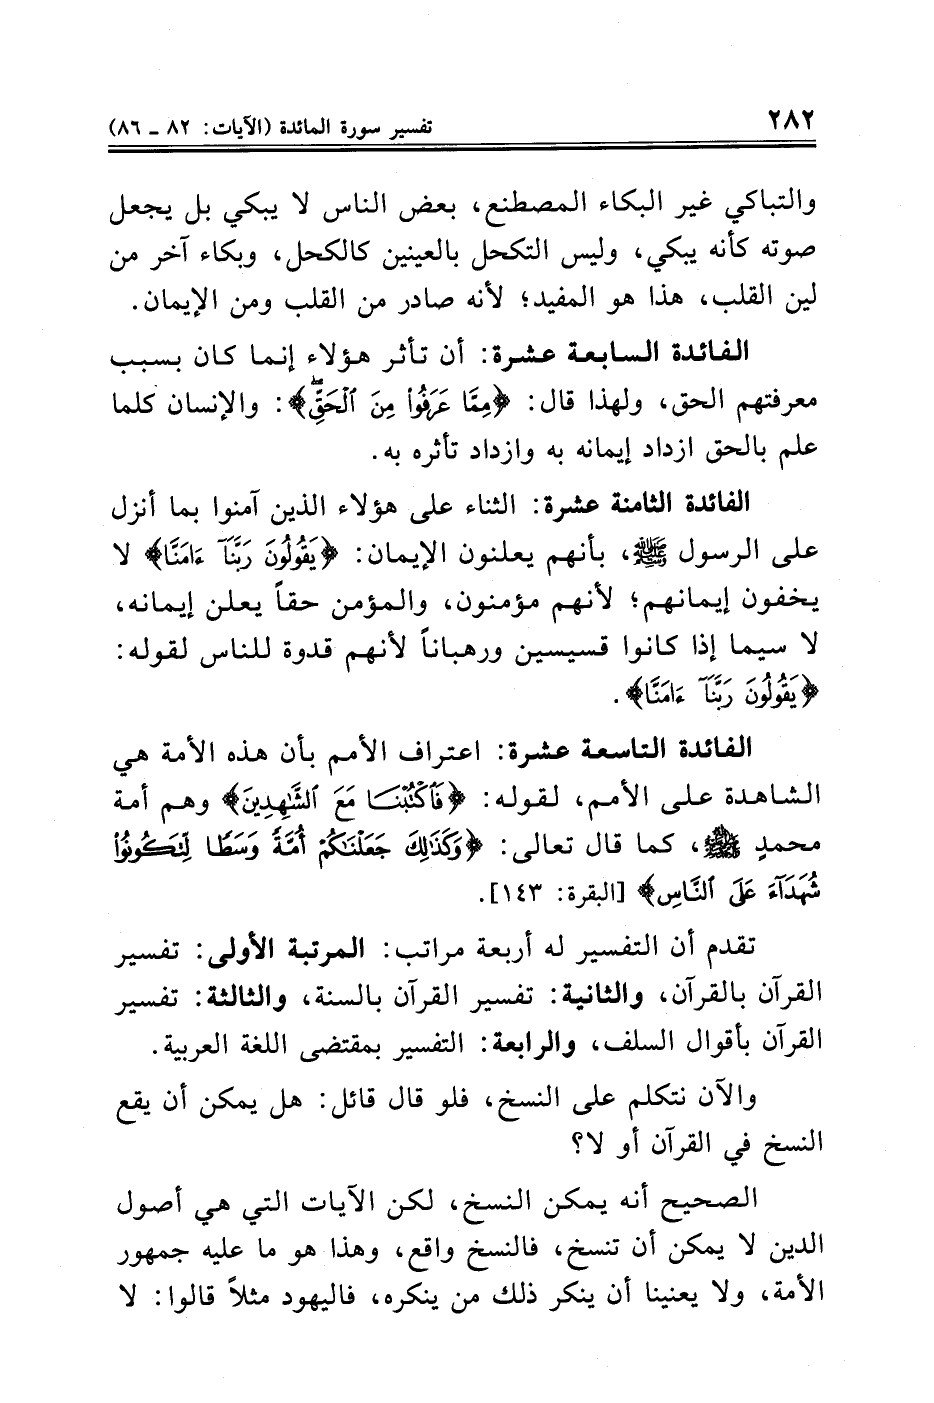 ٢٨٢
تفسير سورة المائدة (الآيات: ٨٢ ـ ٨٦)
والتباكي غير البكاء المصطنع، بعض الناس لا يبكي بل يجعل
صوته كأنه يبكي، وليس التكحل بالعينين كالكحل، وبكاء آخر من
لين القلب، هذا هو المفيد؛ لأنه صادر من القلب ومن الإيمان.
الفائدة السابعة عشرة: أن تأثر هؤلاء إنما كان بسبب
معرفتهم الحق، ولهذا قال: ﴿مِمَّا عَرَفُوا۟ مِنَ ٱلْحَقِّۖ﴾: والإنسان كلما
علم بالحق ازداد إيمانه به وازداد تأثره به.
الفائدة الثامنة عشرة: الثناء على هؤلاء الذين آمنوا بما أنزل
على الرسول ﷺ، بأنهم يعلنون الإيمان: ﴿يَقُولُونَ رَبَّنَآ ءَامَنَّا﴾ لا
يخفون إيمانهم؛ لأنهم مؤمنون، والمؤمن حقاً يعلن إيمانه،
لا سيما إذا كانوا قسيسين ورهباناً لأنهم قدوة للناس لقوله:
﴿يَقُولُونَ رَبَّنَآ ءَامَنَّا﴾.
الفائدة التاسعة عشرة: اعتراف الأمم بأن هذه الأمة هي
الشاهدة على الأمم، لقوله: ﴿فَٱكْتُبْنَا مَعَ ٱلشَّٰهِدِينَ﴾ وهم أمة
محمدٍ ﷺ، كما قال تعالى: ﴿وَكَذَٰلِكَ جَعَلْنَٰكُمْ أُمَّةً وَسَطًا لِّتَكُونُوا۟
شُهَدَآءَ عَلَى ٱلنَّاسِ﴾ [البقرة: ١٤٣].
تقدم أن التفسير له أربعة مراتب: المرتبة الأولى: تفسير
القرآن بالقرآن، والثانية: تفسير القرآن بالسنة، والثالثة: تفسير
القرآن بأقوال السلف، والرابعة: التفسير بمقتضى اللغة العربية.
والآن نتكلم على النسخ، فلو قال قائل: هل يمكن أن يقع
النسخ في القرآن أو لا؟
الصحيح أنه يمكن النسخ، لكن الآيات التي هي أصول
الدين لا يمكن أن تنسخ، فالنسخ واقع، وهذا هو ما عليه جمهور
الأمة، ولا يعنينا أن ينكر ذلك من ينكره، فاليهود مثلاً قالوا: لا